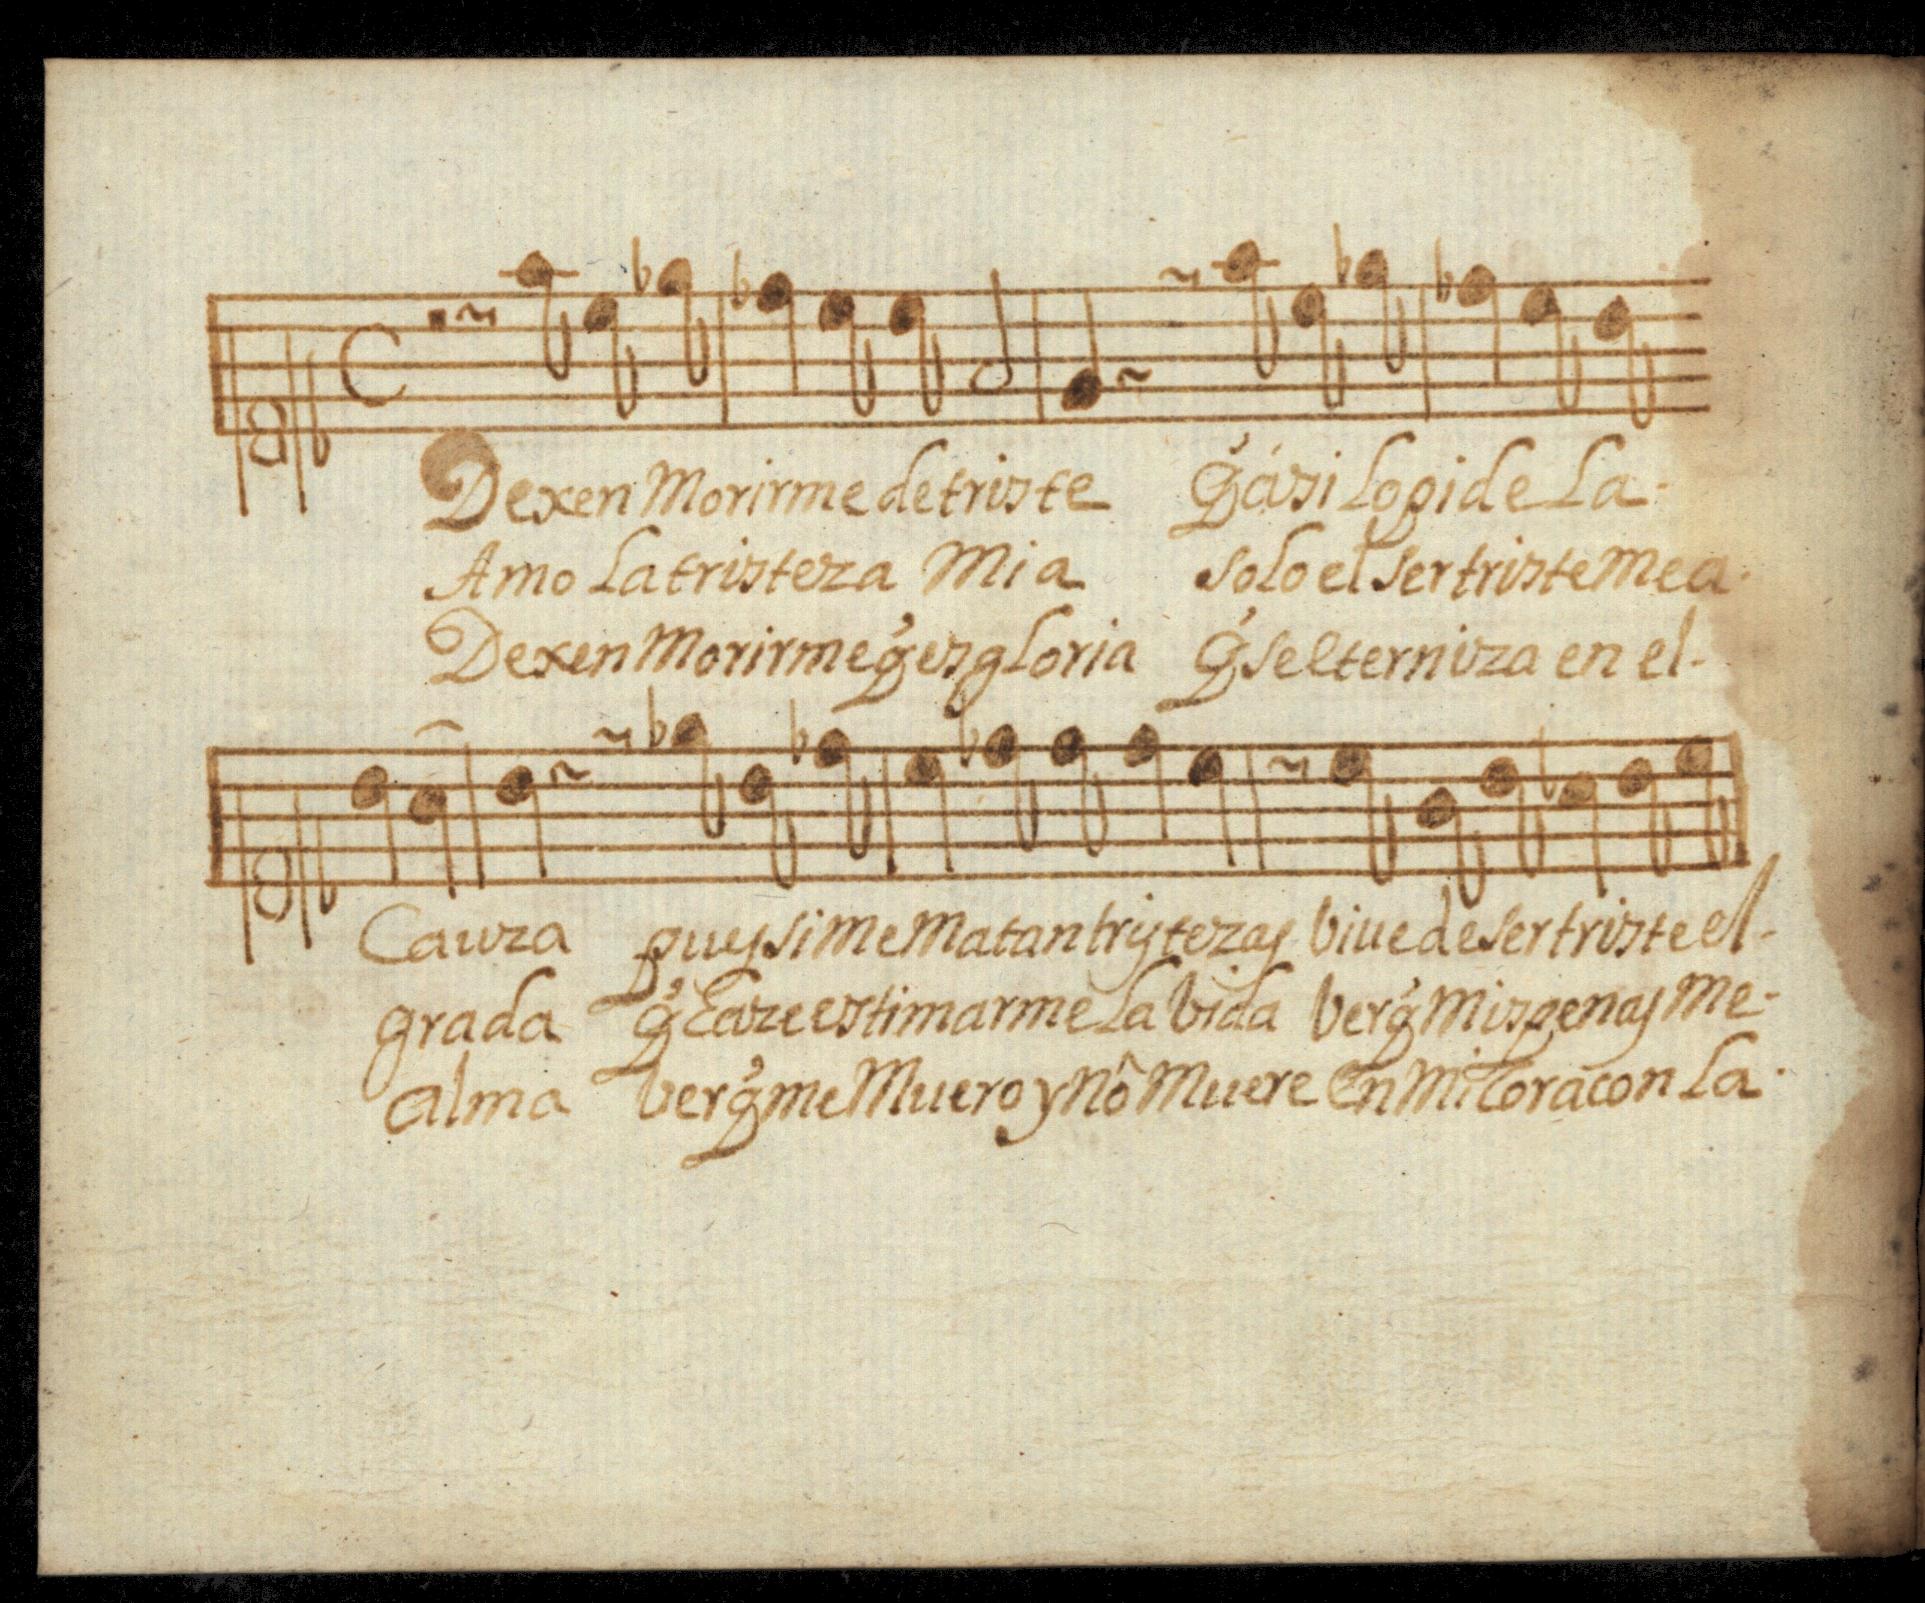 Dexen Morirme de triste q̃ ási lo pide La.
Amo La tristeza Mia solo el ser triste me a.
Dexen Morirme q̃ es gloria q̃ se eterniza en el.
Cauza puessi Me Matan tristezas biue de ser triste el.
grada q̃ haze estimarme La bida ber q̃ Mis penas Me.
alma ber q̃ me Muero y Nô Muere En Mi Coraçon La.